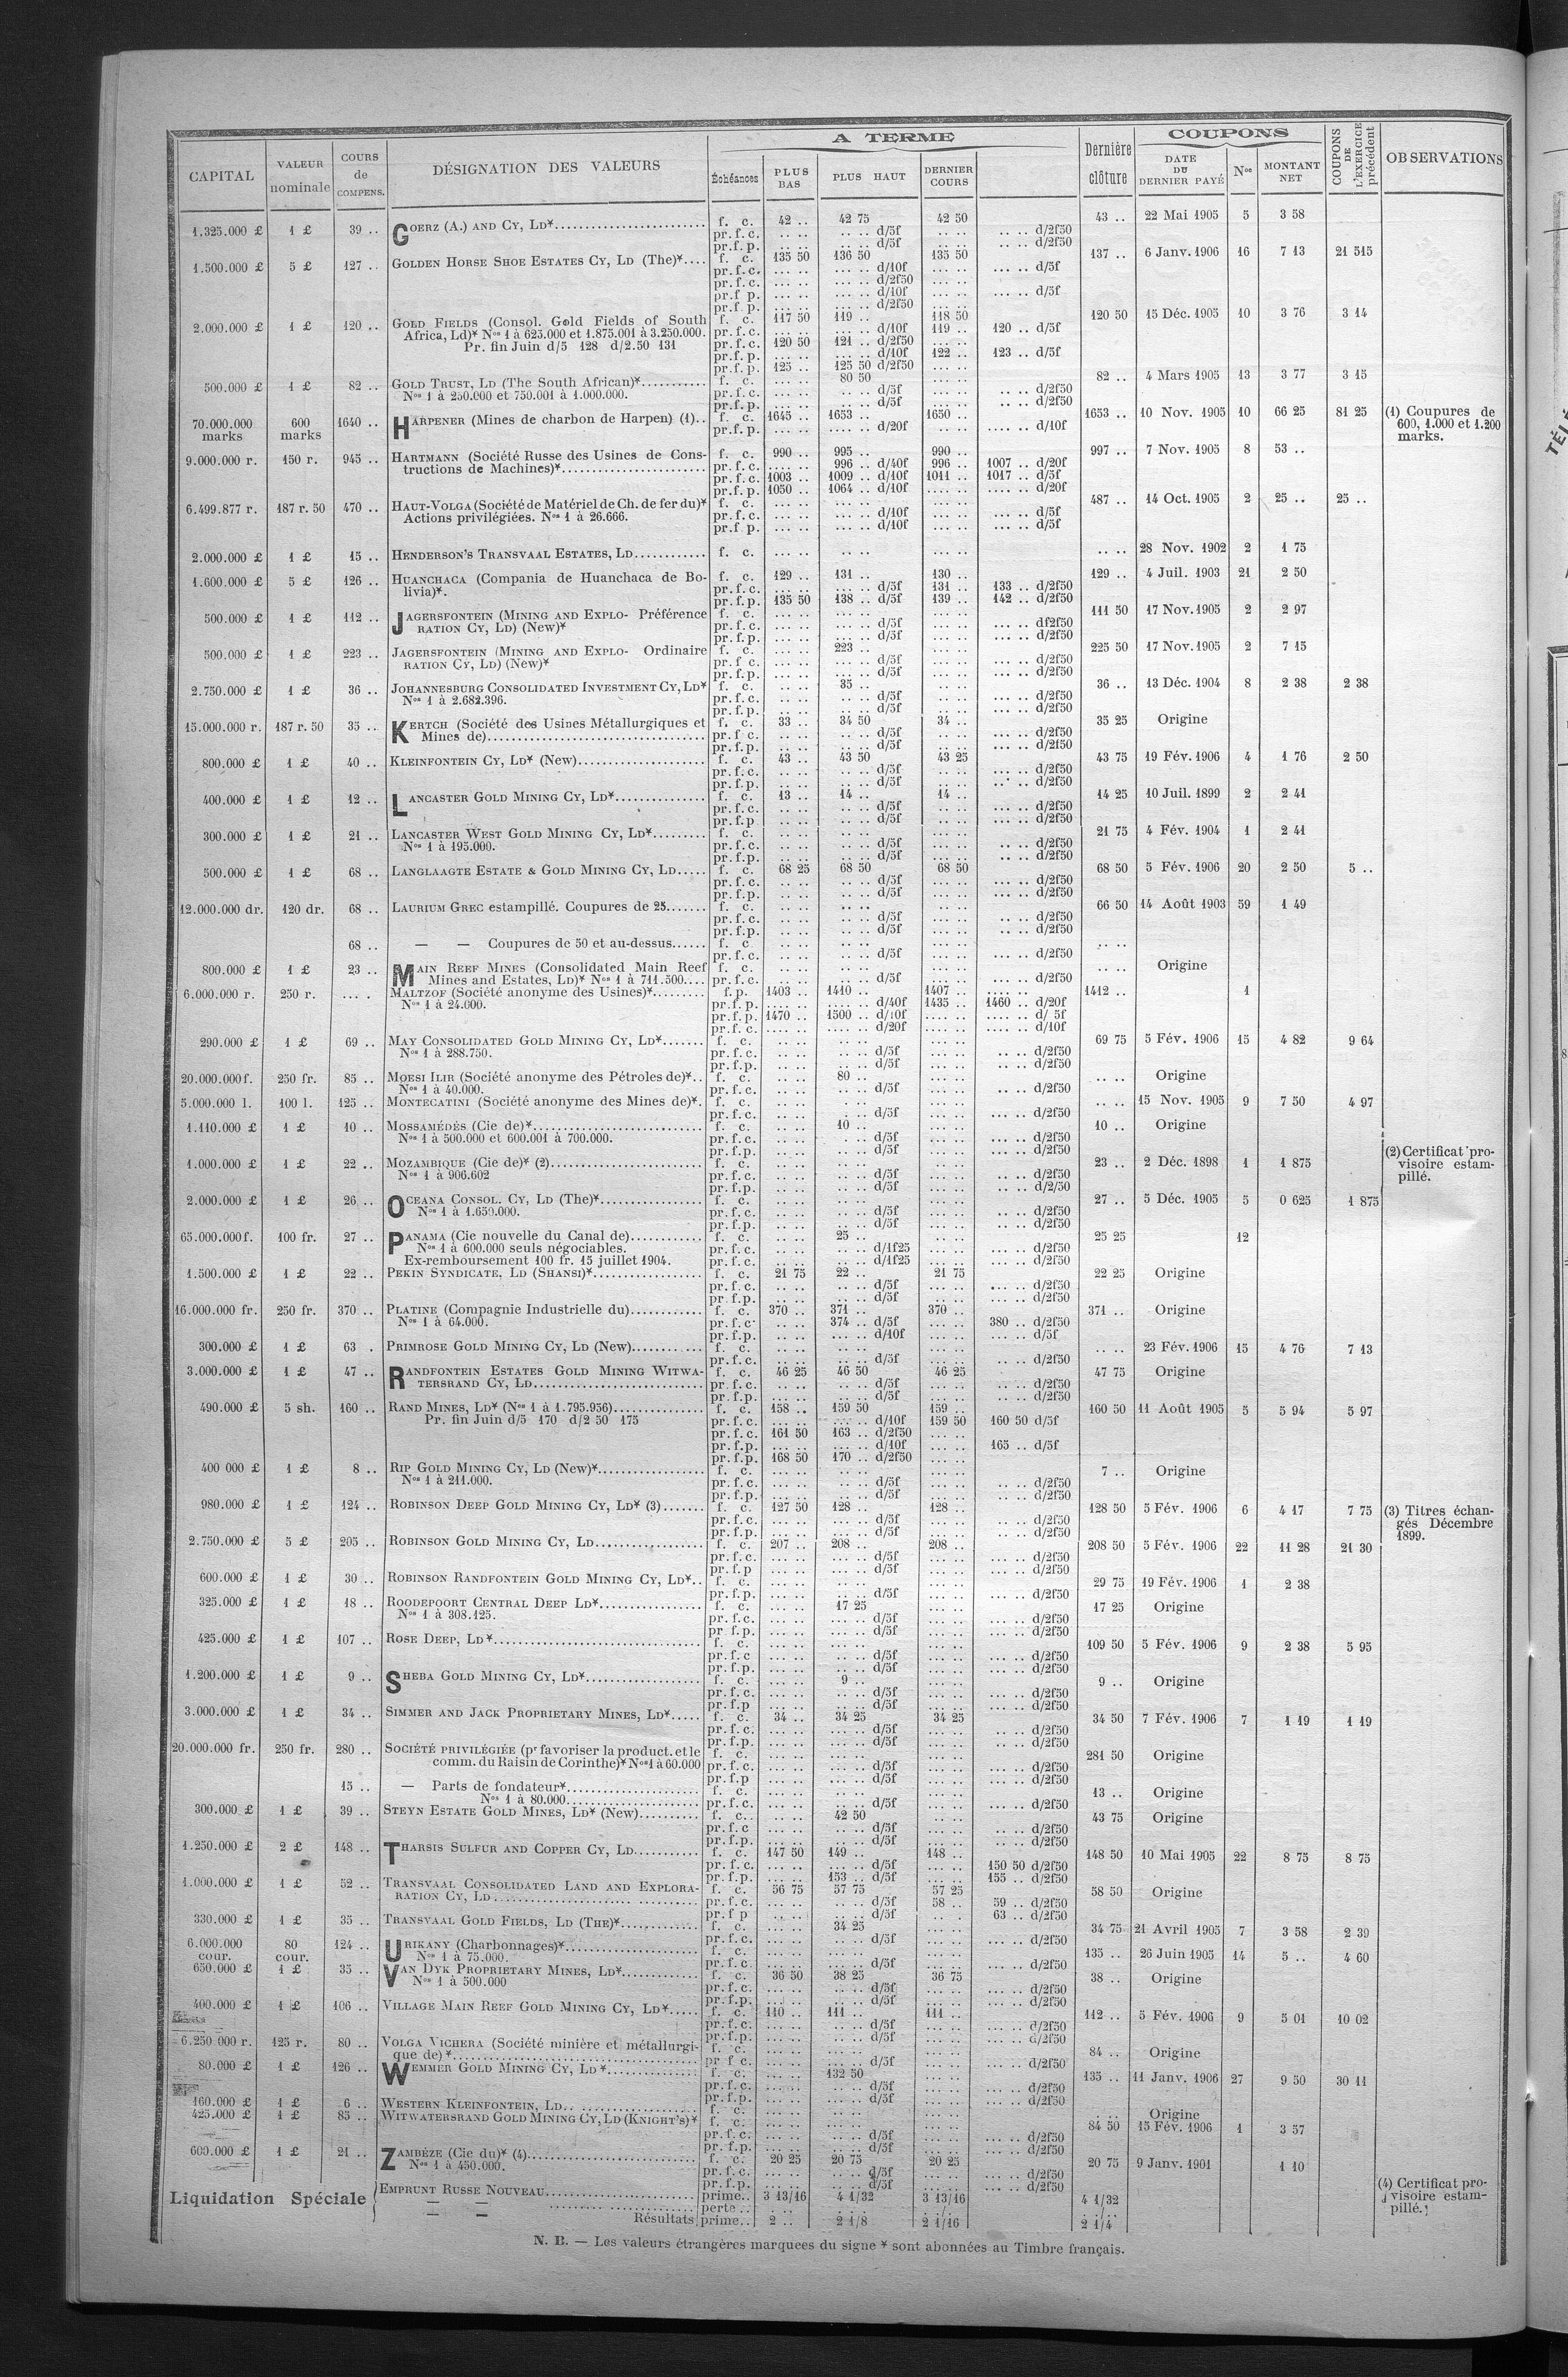 CAPITAL | VALEUR nominale | COURS de COMPENS. | DÉSIGNATION DES VALEURS | A TERME | Échéances | PLUS BAS | PLUS HAUT | DERNIER COURS | Dernière clôture | COUPONS | DATE DU DERNIER PAYÉ | Nos | MONTANT NET | COUPONS DE L'EXERCICE précédent | OBSERVATIONS
1.325.000 £ 1 £ 39 .. GOERZ (A.) AND CY, LD* f. c. 42 .. 42 75 42 50 43 .. 22 Mai 1905 5 3 58
pr.f.c. .. .. .. .. d/5f .. .. .. .. d/2f50
pr.f.p. .. .. .. .. d/5f .. .. .. .. d/2f50
1.500.000 £ 5 £ 127 .. GOLDEN HORSE SHOE ESTATES CY, LD (The)* f. c. 135 50 136 50 135 50 137 .. 6 Janv. 1906 16 7 13 21 515
pr.f.c. ... .. ... .. d/10f ... .. ... .. d/5f
pr.f.c. ... .. ... .. d/2f50
pr.f p. ... .. ... .. d/10f ... .. ... .. d/5f
pr.f.p. ... .. ... .. d/2f50
2.000.000 £ 1 £ 120 .. GOLD FIELDS (Consol. Gold Fields of South f. c. 117 50 119 .. 118 50 120 50 15 Déc. 1905 10 3 76 3 14
Africa, Ld)* Nos 1 à 625.000 et 1.875.001 à 3.250.000. pr.f.c. ... .. ... .. d/10f 119 .. 120 .. d/5f
Pr. fin Juin d/5 128 d/2.50 131 pr.f.c. 120 50 121 .. d/2f50 ... ..
pr.f.p. ... .. ... .. d/10f 122 .. 123 .. d/5f
pr.f.p. 125 .. 125 50 d/2f50 ... ..
500.000 £ 1 £ 82 .. GOLD TRUST, LD (The South African)* f. c. ... .. 80 50 ... .. 82 .. 4 Mars 1905 13 3 77 3 15
Nos 1 à 250.000 et 750.001 à 1.000.000. pr.f.c. ... .. .. .. d/5f ... .. .. .. d/2f50
pr.f.p. ... .. .. .. d/5f ... .. .. .. d/2f50
70.000.000 marks 600 marks 1640 .. HARPENER (Mines de charbon de Harpen) (1).. f. c. 1645 .. 1653 .. 1650 .. 1653 .. 10 Nov. 1905 10 66 25 81 25 (1) Coupures de
pr.f.p. ... .. .... .. d/20f ... .. .... .. d/10f 600, 1.000 et 1.200
marks.
9.000.000 r. 150 r. 945 .. HARTMANN (Société Russe des Usines de Cons- f. c. 990 .. 995 .. 990 .. 997 .. 7 Nov. 1905 8 53 ..
tructions de Machines)* pr.f.c. .... .. 996 .. d/40f 996 .. 1007 .. d/20f
pr.f.c. 1003 .. 1009 .. d/10f 1011 .. 1017 .. d/5f
pr.f.p. 1050 .. 1064 .. d/10f .... .. .... .. d/20f
6.499.877 r. 187 r. 50 470 .. HAUT-VOLGA (Société de Matériel de Ch. de fer du)* f. c. ... .. ... .. ... .. 487 .. 14 Oct. 1905 2 25 .. 25 ..
Actions privilégiées. Nos 1 à 26.666. pr.f.c. ... .. ... .. d/10f ... .. ... .. d/5f
pr.f.p. ... .. ... .. d/10f ... .. ... .. d/5f
2.000.000 £ 1 £ 15 .. HENDERSON'S TRANSVAAL ESTATES, LD f. c. ... .. .. .. ... .. .. .. 28 Nov. 1902 2 1 75
1.600.000 £ 5 £ 126 .. HUANCHACA (Compania de Huanchaca de Bo- f. c. 129 .. 131 .. 130 .. 129 .. 4 Juil. 1903 21 2 50
livia)*. pr.f.c. ... .. ... .. d/5f 131 .. 133 .. d/2f50
pr.f.p. 135 50 138 .. d/5f 139 .. 142 .. d/2f50
500.000 £ 1 £ 112 .. JAGERSFONTEIN (MINING AND EXPLO- Préférence f. c. ... .. ... .. ... .. 111 50 17 Nov. 1905 2 2 97
RATION CY, LD) (New)* pr.f.c. ... .. ... .. d/5f ... .. ... .. df2f50
pr.f.p. ... .. ... .. d/5f ... .. ... .. d/2f50
500.000 £ 1 £ 223 .. JAGERSFONTEIN (MINING AND EXPLO- Ordinaire f. c. ... .. 223 .. ... .. 225 50 17 Nov. 1905 2 7 15
RATION CY, LD) (New)* pr.f c. ... .. ... .. d/5f ... .. ... .. d/2f50
pr.f.p. ... .. ... .. d/5f ... .. ... .. d/2f50
2.750.000 £ 1 £ 36 .. JOHANNESBURG CONSOLIDATED INVESTMENT CY, LD* f. c. .. .. 35 .. ... .. 36 .. 13 Déc. 1904 8 2 38 2 38
Nos 1 à 2.682.396. pr.f.c. .. .. .. .. d/5f ... .. ... .. d/2f50
pr.f.p. .. .. .. .. d/5f ... .. ... .. d/2f50
15.000.000 r. 187 r. 50 35 .. KERTCH (Société des Usines Métallurgiques et f. c. 33 .. 34 50 34 .. 35 25 Origine
Mines de) pr.f c. .. .. .. .. d/5f .. .. ... .. d/2f50
pr.f.p. .. .. .. .. d/5f .. .. ... .. d/2f50
800.000 £ 1 £ 40 .. KLEINFONTEIN CY, LD* (New) f. c. 43 .. 43 50 43 25 43 75 19 Fév. 1906 4 1 76 2 50
pr.f.c. .. .. .. .. d/5f .. .. ... .. d/2f50
pr.f.p. .. .. .. .. d/5f .. .. ... .. d/2f50
400.000 £ 1 £ 12 .. LANCASTER GOLD MINING CY, LD* f. c. 13 .. 14 .. 14 .. 14 25 10 Juil. 1899 2 2 41
pr.f.c. .. .. .. .. d/5f ... .. ... .. d/2f50
pr.f.p .. .. .. .. d/5f ... .. ... .. d/2f50
300.000 £ 1 £ 21 .. LANCASTER WEST GOLD MINING CY, LD* f. c. .. .. .. .. ... .. 21 75 4 Fév. 1904 1 2 41
Nos 1 à 195.000. pr.f.c. .. .. .. .. d/5f ... .. .. .. d/2f50
pr.f.p. .. .. .. .. d/5f ... .. .. .. d/2f50
500.000 £ 1 £ 68 .. LANGLAAGTE ESTATE & GOLD MINING CY, LD f. c. 68 25 68 50 68 50 68 50 5 Fév. 1906 20 2 50 5 ..
pr.f.c. .. .. .. .. d/5f .. .. ... .. d/2f50
pr.f.p. .. .. .. .. d/5f .. .. ... .. d/2f50
12.000.000 dr. 120 dr. 68 .. LAURIUM GREC estampillé. Coupures de 25 f. c. .. .. .. .. .. .. 66 50 14 Août 1903 59 1 49
pr.f.c. .. .. .. .. d/5f .. .. .. .. d/2f50
pr.f.p. .. .. .. .. d/5f .. .. .. .. d/2f50
68 .. — — Coupures de 50 et au-dessus f. c .. .. .. .. .. .. .. ..
pr.f.c. .. .. .. .. d/5f .. .. .. .. d/2f50
800.000 £ 1 £ 23 .. MAIN REEF MINES (Consolidated Main Reef f. c. .. .. .. .. ... .. .. .. Origine
Mines and Estates, Ld)* Nos 1 à 711.500 pr.f.c. .. .. .. .. d/5f ... .. ... .. d/2f50
6.000.000 r. 250 r. ... . MALTZOF (Société anonyme des Usines)* f.p. 1403 .. 1410 .. 1407 .. 1412 .. 1
Nos 1 à 24.000. pr.f.p. .... .. .... .. d/40f 1435 .. 1460 .. d/20f
pr.f.p. 1470 .. 1500 .. d/10f .... .. .... .. d/ 5f
pr.f.c. .... .. .... .. d/20f .... .. .... .. d/10f
290.000 £ 1 £ 69 .. MAY CONSOLIDATED GOLD MINING CY, LD* f. c. .. .. .. .. .. .. 69 75 5 Fév. 1906 15 4 82 9 64
Nos 1 à 288.750. pr.f.c. .. .. .. .. d/5f .. .. .. .. d/2f50
pr.f.p. .. .. .. .. d/5f .. .. .. .. d/2f50
20.000.000 f. 250 fr. 85 .. MOESI ILIR (Société anonyme des Pétroles de)* f. c. .. .. 80 .. .. .. .. .. Origine
Nos 1 à 40.000. pr.f.c. .. .. .. .. d/5f .. .. .. .. d/2f50
5.000.000 l. 100 l. 125 .. MONTECATINI (Société anonyme des Mines de)* f. c. .. .. .. .. .. .. .. .. 15 Nov. 1905 9 7 50 4 97
pr.f.c. .. .. .. .. d/5f .. .. ... .. d/2f50
1.110.000 £ 1 £ 10 .. MOSSAMÉDÈS (Cie de)* f. c. .. .. 10 .. ... .. 10 .. Origine
Nos 1 à 500.000 et 600.001 à 700.000. pr.f.c. .. .. .. .. d/5f ... .. ... .. d/2f50
pr.f.p. .. .. .. .. d/5f ... .. ... .. d/2f50
1.000.000 £ 1 £ 22 .. MOZAMBIQUE (Cie de)* (2) f. c. .. .. .. .. ... .. 23 .. 2 Déc. 1898 1 1 875 (2) Certificat pro-
Nos 1 à 906.602 pr.f.c. .. .. .. .. d/5f ... .. .. .. d/2f50 visoire estam-
pr.f.p. .. .. .. .. d/5f ... .. .. .. d/2/50 pillé.
2.000.000 £ 1 £ 26 .. OCEANA CONSOL. CY, LD (The)* f. c. .. .. .. .. ... .. 27 .. 5 Déc. 1905 5 0 625 1 875
Nos 1 à 1.650.000. pr.f.c. .. .. .. .. d/5f ... .. .. .. d/2f50
pr.f.p. .. .. .. .. d/5f ... .. .. .. d/2f50
65.000.000 f. 100 fr. 27 .. PANAMA (Cie nouvelle du Canal de) f. c. .. .. 25 .. ... .. 25 25 12
Nos 1 à 600.000 seuls négociables. pr.f.c. .. .. .. .. d/1f25 ... .. ... .. d/2f50
Ex-remboursement 100 fr. 15 juillet 1904. pr.f.c. .. .. .. .. d/1f25 ... .. ... .. d/2f50
1.500.000 £ 1 £ 22 .. PEKIN SYNDICATE, LD (SHANSI)* f. c. 21 75 22 .. 21 75 22 25 Origine
pr.f.c. .. .. .. .. d/5f .. .. ... .. d/2f50
pr.f.p. .. .. .. .. d/5f .. .. ... .. d/2f50
16.000.000 fr. 250 fr. 370 .. PLATINE (Compagnie Industrielle du) f. c. 370 .. 371 .. 370 .. 371 .. Origine
Nos 1 à 64.000. pr.f.c. .. .. 374 .. d/5f ... .. 380 .. d/2f50
pr.f.p. .. .. ... .. d/10f ... .. ... .. d/5f
300.000 £ 1 £ 63 . PRIMROSE GOLD MINING CY, LD (New) f. c. .. .. .. .. ... .. .. .. 23 Fév. 1906 15 4 76 7 13
pr.f.c. .. .. .. .. d/5f ... .. .. .. d/2f50
3.000.000 £ 1 £ 47 .. RANDFONTEIN ESTATES GOLD MINING WITWA- f. c. 46 25 46 50 46 25 47 75 Origine
TERSRAND CY, LD pr.f.c. .. .. .. .. d/5f .. .. .. .. d/2f50
pr.f.p. .. .. .. .. d/5f .. .. .. .. d/2f50
490.000 £ 5 sh. 160 .. RAND MINES, LD* (Nos 1 à 1.795.956) f. c. 158 .. 159 50 159 .. 160 50 11 Août 1905 5 5 94 5 97
Pr. fin Juin d/5 170 d/2 50 175 pr.f.c. ... .. ... .. d/10f 159 50 160 50 d/5f
pr.f.c. 161 50 163 .. d/2f50 ... ..
pr.f.p. ... .. ... .. d/10f ... .. 165 .. d/5f
pr.f.p. 168 50 170 .. d/2f50 ... ..
400 000 £ 1 £ 8 .. RIP GOLD MINING CY, LD (New)* f. c. ... .. .. .. ... .. 7 .. Origine
Nos 1 à 211.000. pr.f.c. ... .. .. .. d/5f ... .. .. .. d/2f50
pr.f.p. ... .. .. .. d/5f ... .. .. .. d/2f50
980.000 £ 1 £ 124 .. ROBINSON DEEP GOLD MINING CY, LD* (3) f. c. 127 50 128 .. 128 .. 128 50 5 Fév. 1906 6 4 17 7 75 (3) Titres échan-
pr.f.c. ... .. ... .. d/5f ... .. .. .. d/2f50 gés Décembre
pr.f.p. ... .. ... .. d/5f ... .. .. .. d/2f50 1899.
2.750.000 £ 5 £ 205 .. ROBINSON GOLD MINING CY, LD f. c. 207 .. 208 .. 208 .. 208 50 5 Fév. 1906 22 11 28 21 30
pr.f.c. ... .. ... .. d/5f ... .. ... .. d/2f50
pr.f.p ... .. ... .. d/5f ... .. ... .. d/2f50
600.000 £ 1 £ 30 .. ROBINSON RANDFONTEIN GOLD MINING CY, LD* f. c. ... .. .. .. ... .. 29 75 19 Fév. 1906 1 2 38
pr.f.p. ... .. .. .. d/5f ... .. ... .. d/2f50
325.000 £ 1 £ 18 .. ROODEPOORT CENTRAL DEEP LD* f. c. ... .. 17 25 ... .. 17 25 Origine
Nos 1 à 308.125. pr.f.c. ... .. ... .. d/5f ... .. ... .. d/2f50
pr.f.p. ... .. ... .. d/5f ... .. ... .. d/2f50
425.000 £ 1 £ 107 .. ROSE DEEP, LD* f. c. ... .. ... .. ... .. 109 50 5 Fév. 1906 9 2 38 5 95
pr.f.c ... .. ... .. d/5f ... .. ... .. d/2f50
pr.f.p. ... .. .. .. d/5f ... .. ... .. d/2f50
1.200.000 £ 1 £ 9 .. SHEBA GOLD MINING CY, LD* f. c. ... .. 9 .. ... .. 9 .. Origine
pr.f.c. ... .. .. .. d/5f ... .. ... .. d/2f50
pr.f.p ... .. .. .. d/5f ... .. ... .. d/2f50
3.000.000 £ 1 £ 34 .. SIMMER AND JACK PROPRIETARY MINES, LD* f. c. 34 .. 34 25 34 25 34 50 7 Fév. 1906 7 1 19 1 19
pr.f.c. ... .. ... .. d/5f ... .. .. .. d/2f50
pr.f.p. ... .. ... .. d/5f ... .. .. .. d/2f50
20.000.000 fr. 250 fr. 280 .. SOCIÉTÉ PRIVILÉGIÉE (pr favoriser la product. et le f. c. ... .. ... .. ... .. 281 50 Origine
comm. du Raisin de Corinthe)* Nos 1 à 60.000 pr.f.c. ... .. ... .. d/5f ... .. ... .. d/2f50
pr.f.p ... .. ... .. d/5f ... .. ... .. d/2f50
15 .. — Parts de fondateur* f. c. ... .. .. .. ... .. 13 .. Origine
Nos 1 à 80.000 pr.f.c. ... .. .. .. d/5f ... .. ... .. d/2f50
300.000 £ 1 £ 39 .. STEYN ESTATE GOLD MINES, LD* (New) f. c. .. .. 42 50 ... .. 43 75 Origine
pr.f.c ... .. .. .. d/5f ... .. .. .. d/2f50
pr.f.p. ... .. .. .. d/5f ... .. .. .. d/2f50
1.250.000 £ 2 £ 148 .. THARSIS SULFUR AND COPPER CY, LD f. c. 147 50 149 .. 148 .. 148 50 10 Mai 1905 22 8 75 8 75
pr.f.c. ... .. ... .. d/5f ... .. 150 50 d/2f50
pr.f.p. ... .. 153 .. d/5f ... .. 155 .. d/2f50
1.000.000 £ 1 £ 52 .. TRANSVAAL CONSOLIDATED LAND AND EXPLORA- f. c. 56 75 57 75 57 25 58 50 Origine
RATION CY, LD pr.f.c. ... .. .. .. d/5f 58 .. 59 .. d/2f50
pr.f p .. .. .. .. d/5f .. . 63 .. d/2f50
330.000 £ 1 £ 35 .. TRANSVAAL GOLD FIELDS, LD (THE)* f. c. ... .. 34 25 ... .. 34 75 21 Avril 1905 7 3 58 2 39
pr.f.c. ... .. .. .. d/5f ... .. ... .. d/2f50
6.000.000 cour. 80 cour. 124 .. URIKANY (Charbonnages)* f. c. ... .. ... .. ... .. 135 .. 26 Juin 1905 14 5 .. 4 60
Nos 1 à 75.000 pr.f.c. ... .. ... .. d/5f ... .. ... .. d/2f50
650.000 £ 1 £ 35 .. VAN DYK PROPRIETARY MINES, LD* f. c. 36 50 38 25 36 75 38 .. Origine
Nos 1 à 500.000 pr.f.c. ... .. ... .. d/5f ... .. ... .. d/2f50
pr.f.p. ... .. ... .. d/5f ... .. ... .. d/2f50
400.000 £ 1 £ 106 .. VILLAGE MAIN REEF GOLD MINING CY, LD* f. c. 110 .. 111 .. 111 .. 112 .. 5 Fév. 1906 9 5 01 10 02
pr.f.c. ... .. ... .. d/5f ... .. ... .. d/2f50
pr.f.p. ... .. ... .. d/5f ... .. ... .. d/2f50
6.250 000 r. 125 r. 80 .. VOLGA VICHERA (Société minière et métallurgi- f. c. ... .. ... .. ... .. 84 .. Origine
que de)* pr f c. ... .. ... .. d/5f ... .. ... .. d/2f50
80.000 £ 1 £ 126 .. WEMMER GOLD MINING CY, LD* f. c. ... .. 132 50 ... .. 135 .. 11 Janv. 1906 27 9 50 30 11
pr.f.c. ... .. ... .. d/5f ... .. ... .. d/2f50
pr.f.p. ... .. ... .. d/5f ... .. ... .. d/2f50
160.000 £ 1 £ 6 .. WESTERN KLEINFONTEIN, LD f. c. ... .. .. .. ... .. .. .. Origine
425.000 £ 1 £ 85 .. WITWATERSRAND GOLD MINING CY, LD (KNIGHT'S)* f. c. ... .. .. .. ... .. 84 50 15 Fév. 1906 1 3 57
pr.f.c. ... .. .. .. d/5f ... .. ... .. d/2f50
pr.f.p. ... .. .. .. d/5f ... .. ... .. d/2f50
600.000 £ 1 £ 21 .. ZAMBÈZE (Cie du)* (4) f. c. 20 25 20 75 20 25 20 75 9 Janv. 1901 1 10
Nos 1 à 450.000. pr.f.c. ... .. .. .. d/5f ... .. ... .. d/2f50
pr.f.p. ... .. .. .. d/5f ... .. ... .. d/2f50 (4) Certificat pro-
Liquidation Spéciale EMPRUNT RUSSE NOUVEAU prime.. 3 13/16 4 1/32 3 13/16 4 1/32 visoire estam-
— — perte .. pillé.
— — Résultats prime.. 2 .. 2 1/8 2 1/16 2 1/4
N. B. — Les valeurs étrangères marquees du signe * sont abonnées au Timbre français.